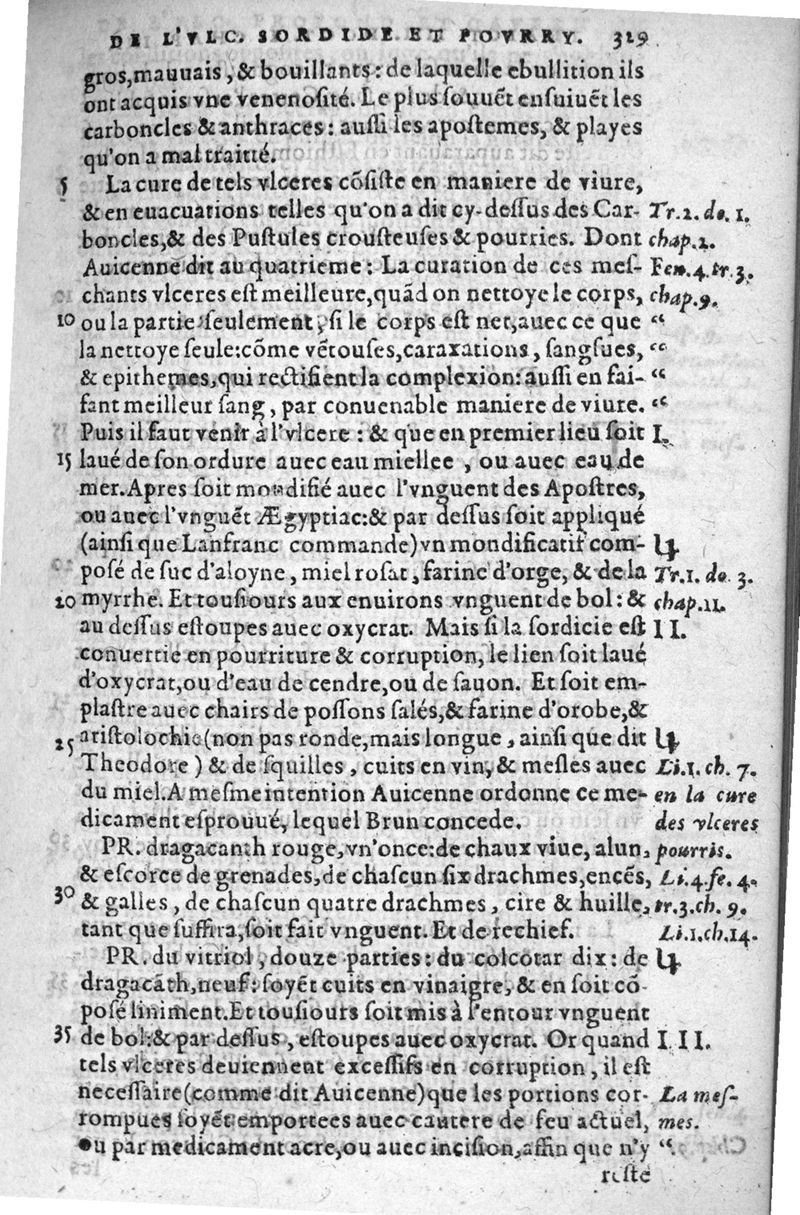 DE L'VLC. SORDIDE ET POVRRY. 319
gros,mauuais, & bouillants: de laquelle ebullition ils
ont acquis vne venenosité. Le plus souuēt ensuiuēt les
carboncles & anthraces: aussi les apostemes, & playes
qu'on a mal traitté.
5 La cure de tels vlceres cōsiste en maniere de viure,
& en euacuations telles qu'on a dit cy-dessus des Car- Tr.2. do. 1.
boncles,& des Pustules crousteuses & pourries. Dont chap.2.
Auicenne dit au quatrieme: La curation de ces mes- Fen.4.tr.3.
chants vlceres est meilleure,quād on nettoye le corps, chap.9.
10 ou la partie seulement, si le corps est net,auec ce que “
la nettoye seule:cōme vētouses,caraxations, sangsues, “
& epithemes,qui rectifient la complexion: aussi en fai- “
sant meilleur sang, par conuenable maniere de viure. “
Puis il faut venir à l'vlcere: & que en premier lieu soit I.
15 laué de son ordure auec eau miellee, ou auec eau de
mer.Apres soit mondifié auec l'vnguent des Apostres,
ou auec l'vnguēt Ægyptiac:& par dessus soit appliqué
(ainsi que Lanfranc commande)vn mondificatif com-
posé de suc d'aloyne, miel rosat, farine d'orge, & de la Tr.1. do. 3.
20 myrrhe. Et tousiours aux enuirons vnguent de bol: & chap.11.
au dessus estoupes auec oxycrat. Mais si la sordicie est II.
conuertie en pourriture & corruption, le lien soit laué
d'oxycrat,ou d'eau de cendre,ou de sauon. Et soit em-
plastre auec chairs de possons salés,& farine d'orobe,&
25 aristolochie(non pas ronde,mais longue, ainsi que dit
Theodore) & de squilles, cuits en vin, & mesles auec Li.1. ch. 7.
du miel.A mesme intention Auicenne ordonne ce me- en la cure
dicament esprouué, lequel Brun concede. des vlceres
PR. dragacanth rouge,vn'once:de chaux viue, alun, pourris.
& escorce de grenades,de chascun six drachmes,encēs, Li.4.fe.4.
30 & galles, de chascun quatre drachmes, cire & huille, tr.3.ch. 9.
tant que suffira,soit fait vnguent. Et de rechief. Li.1.ch.14.
PR. du vitriol, douze parties: du colcotar dix: de
dragacāth,neuf: soyēt cuits en vinaigre, & en soit cō-
posé liniment.Et tousiours soit mis à l'entour vnguent
35 de bol:& par dessus, estoupes auec oxycrat. Or quand III.
tels vlceres deuiennent excessifs en corruption, il est
necessaire(comme dit Auicenne)que les portions cor- La mes-
rompues soyēt emportees auec cautere de feu actuel, mes.
ou par medicament acre,ou auec incision,affin que n'y “
reste